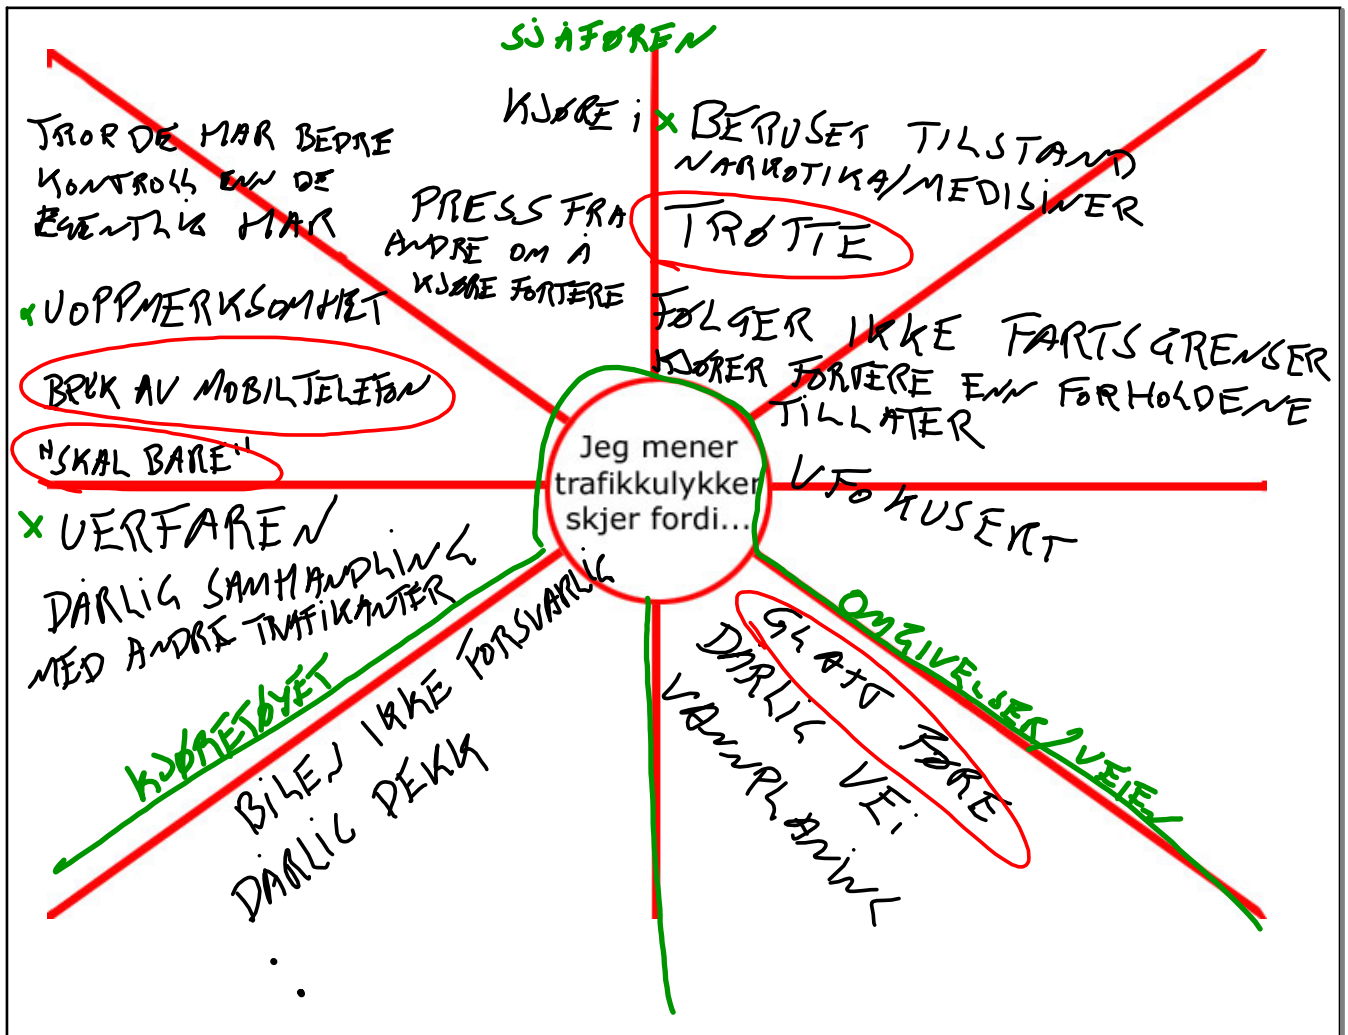 SJÅFØREN
KJØRE i x BERUSET TILSTAND
NARKOTIKA/MEDISINER
TROR DE HAR BEDRE
KONTROLL ENN DE
EGENTLIG HAR
PRESS FRA
ANDRE OM Å
KJØRE FORTERE
TRØTTE
x UOPPMERKSOMHET
BRUK AV MOBILTELEFON
"SKAL BARE"
FØLGER IKKE FARTSGRENSER
KJØRER FORTERE ENN FORHOLDENE
TILLATER
UFOKUSERT
Jeg mener
trafikkulykker
skjer fordi...
x UERFAREN
DÅRLIG SAMHANDLING
MED ANDRE TRAFIKANTER
KJØRETØYET
BILEN IKKE FORSVARLIG
DÅRLIG DEKK
OMGIVELSER/VEIEN
GLATT FØRE
DÅRLIG VEi
VANNPLANING